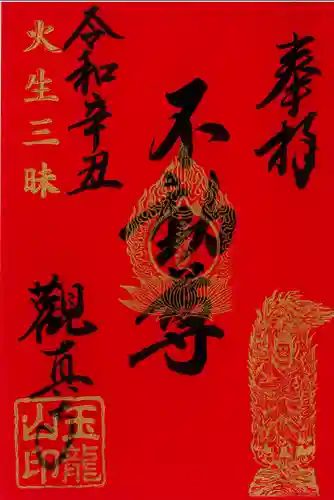 奉拝
不動尊
令和辛丑
火生三昧
觀真寺
玉龍
山印